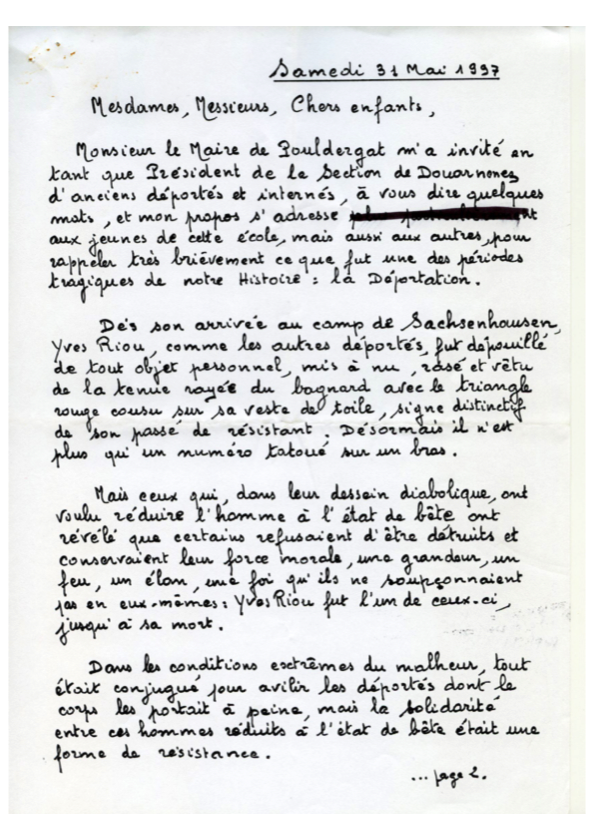 Samedi 31 Mai 1997
Mesdames, Messieurs, Chers enfants,
Monsieur le Maire de Pouldergat m'a invité en
tant que Président de la Section de Douarnenez
d'anciens déportés et internés, à vous dire quelques
mots, et mon propos s'adresse
aux jeunes de cette école, mais aussi aux autres, pour
rappeler très brièvement ce que fut une des périodes
tragiques de notre Histoire : la Déportation.
Dès son arrivée au camp de Sachsenhausen,
Yves Riou, comme les autres déportés, fut dépouillé
de tout objet personnel, mis à nu, rasé et vêtu
de la tenue rayée du bagnard avec le triangle
rouge cousu sur sa veste de toile, signe distinctif
de son passé de résistant. Désormais il n'est
plus qu'un numéro tatoué sur un bras.
Mais ceux qui, dans leur dessein diabolique, ont
voulu réduire l'homme à l'état de bête ont
révélé que certains refusaient d'être détruits et
conservaient leur force morale, une grandeur, un
feu, un élan, une foi qu'ils ne soupçonnaient
pas en eux-mêmes : Yves Riou fut l'un de ceux-ci,
jusqu'à sa mort.
Dans les conditions extrêmes du malheur, tout
était conjugué pour avilir les déportés dont le
corps les portait à peine, mais la solidarité
entre ces hommes réduits à l'état de bête était une
forme de résistance.
... page 2.